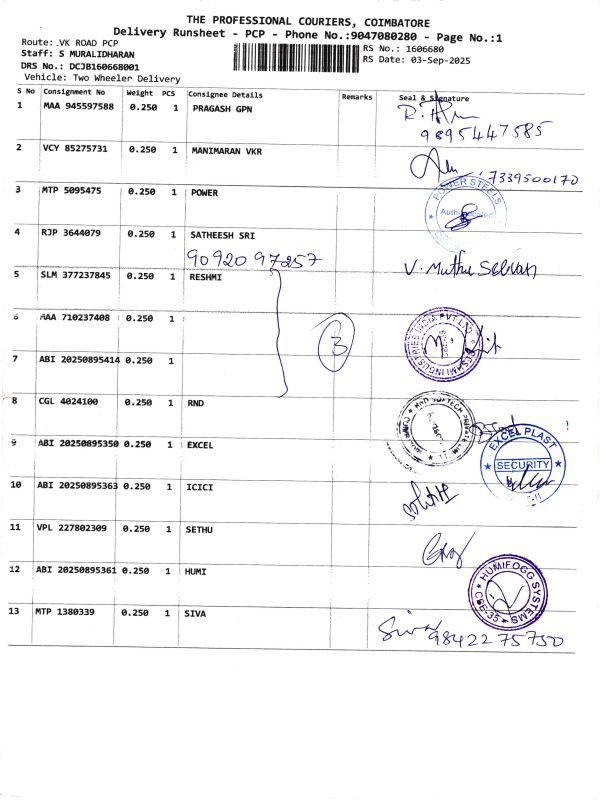 THE PROFESSIONAL COURIERS, COIMBATORE
Delivery Runsheet - PCP - Phone No.:9047080280 - Page No.:1
Route: VK ROAD PCP
Staff: S MURALIDHARAN
DRS No.: DCJB160668001
Vehicle: Two Wheeler Delivery
RS No.: 1606680
RS Date: 03-Sep-2025
S No Consignment No Weight PCS Consignee Details Remarks Seal & Signature
1 MAA 945597588 0.250 1 PRAGASH GPN
9895447585
2 VCY 85275731 0.250 1 MANIMARAN VKR
7339500170
3 MTP 5095475 0.250 1 POWER
POWER STEELS
4 RJP 3644079 0.250 1 SATHEESH SRI
9092097257
V. Muthu Selvan
5 SLM 377237845 0.250 1 RESHMI
6 AAA 710237408 0.250 1
3
7 ABI 20250895414 0.250 1
RESHMI INDUSTRIES INDIA PVT LTD
8 CGL 4024100 0.250 1 RND
9 ABI 20250895350 0.250 1 EXCEL
EXCEL PLAST
SECURITY
10 ABI 20250895363 0.250 1 ICICI
11 VPL 227802309 0.250 1 SETHU
12 ABI 20250895361 0.250 1 HUMI
HUMIFOGG SYSTEMS
CBE-35
13 MTP 1380339 0.250 1 SIVA
Siva
9842275750